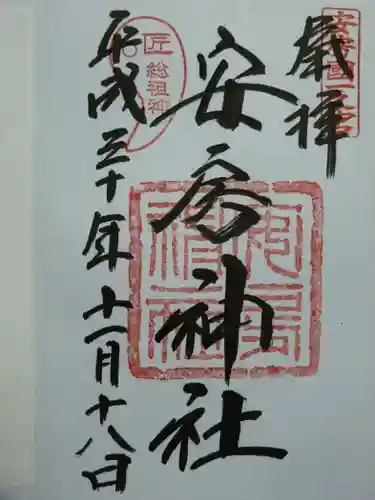 奉拝
安房國一之宮
安房神社
匠総祖神
平成三十年十一月十八日